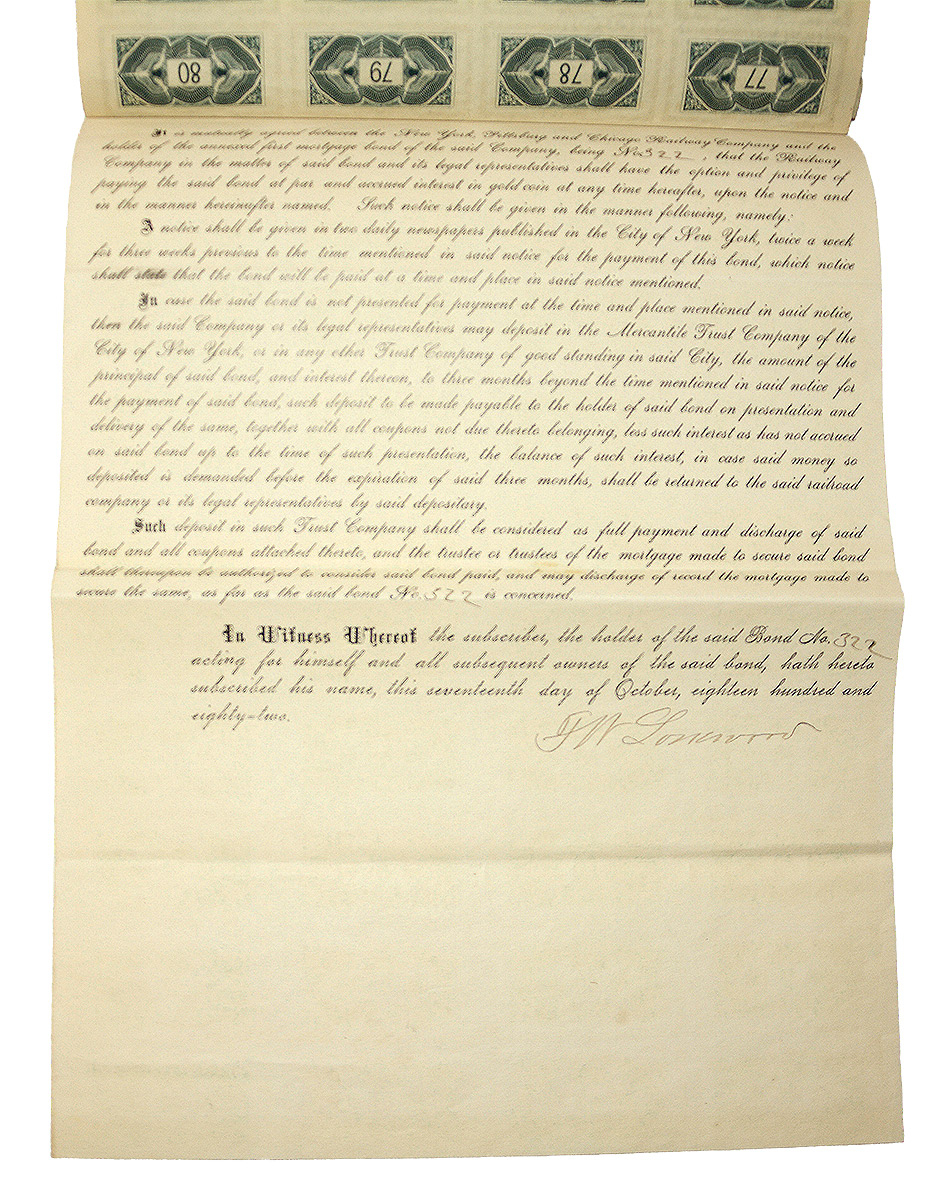 80 79 78 77
It is mutually agreed between the New York, Pittsburg and Chicago Railway Company and the
holder of the annexed first mortgage bond of the said Company, being No. 322, that the Railway
Company in the matter of said bond and its legal representatives shall have the option and privilege of
paying the said bond at par and accrued interest in gold coin at any time hereafter, upon the notice and
in the manner hereinafter named. Such notice shall be given in the manner following, namely:
A notice shall be given in two daily newspapers published in the City of New York, twice a week
for three weeks previous to the time mentioned in said notice for the payment of this bond, which notice
shall state that the bond will be paid at a time and place in said notice mentioned.
In case the said bond is not presented for payment at the time and place mentioned in said notice,
then the said Company or its legal representatives may deposit in the Mercantile Trust Company of the
City of New York, or in any other Trust Company of good standing in said City, the amount of the
principal of said bond, and interest thereon, to three months beyond the time mentioned in said notice for
the payment of said bond, such deposit to be made payable to the holder of said bond on presentation and
delivery of the same, together with all coupons not due thereto belonging, less such interest as has not accrued
on said bond up to the time of such presentation, the balance of such interest, in case said money so
deposited is demanded before the expiration of said three months, shall be returned to the said railroad
company or its legal representatives by said depositary.
Such deposit in such Trust Company shall be considered as full payment and discharge of said
bond and all coupons attached thereto, and the trustee or trustees of the mortgage made to secure said bond
shall thereupon be authorized to consider said bond paid, and may discharge of record the mortgage made to
secure the same, as far as the said bond No. 322 is concerned.
In Witness Whereof the subscriber, the holder of the said Bond No. 322
acting for himself and all subsequent owners of the said bond, hath hereto
subscribed his name, this seventeenth day of October, eighteen hundred and
eighty=two.